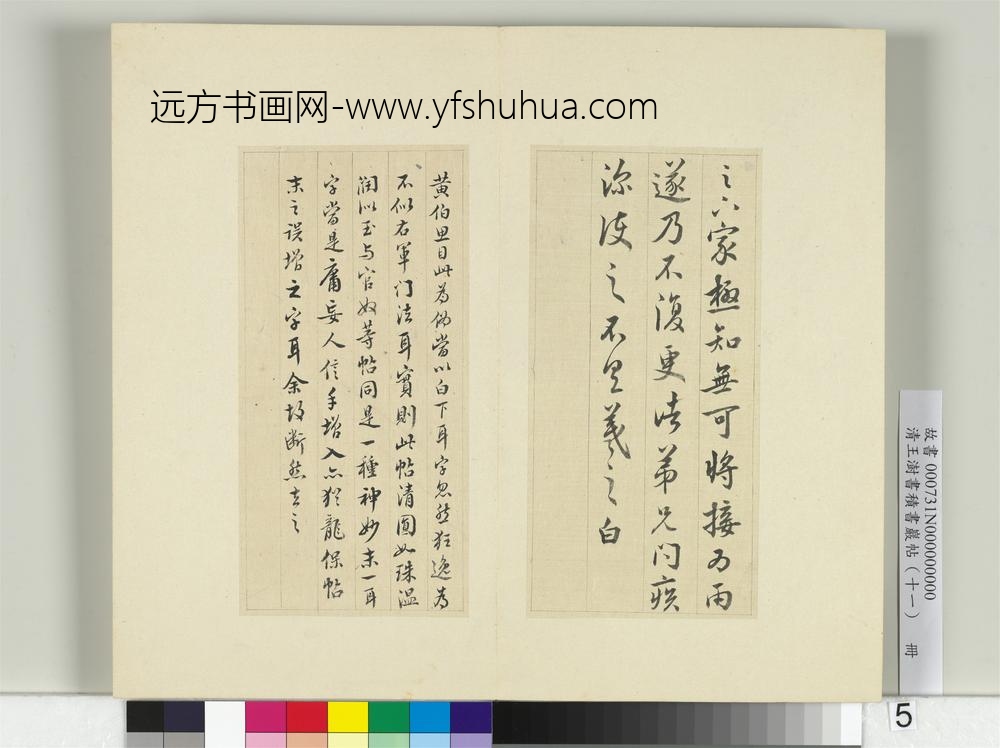 远方书画网-www.yfshuhua.com
之六家極知無可將接為雨
遂乃不復更諸弟兄問疾
深護之不具羲之白
黄伯思目此為偽當以白下耳字忽然狂逸為
不似右軍門法耳實則此帖清圓如珠溫
潤似玉与官奴等帖同是一種神妙末一耳
字當是庸妄人信手增入亦猶龍保帖
末之误增之字耳余故断然去之
故書 000731N000000000
清王澍書積書巖帖（十一） 冊
5